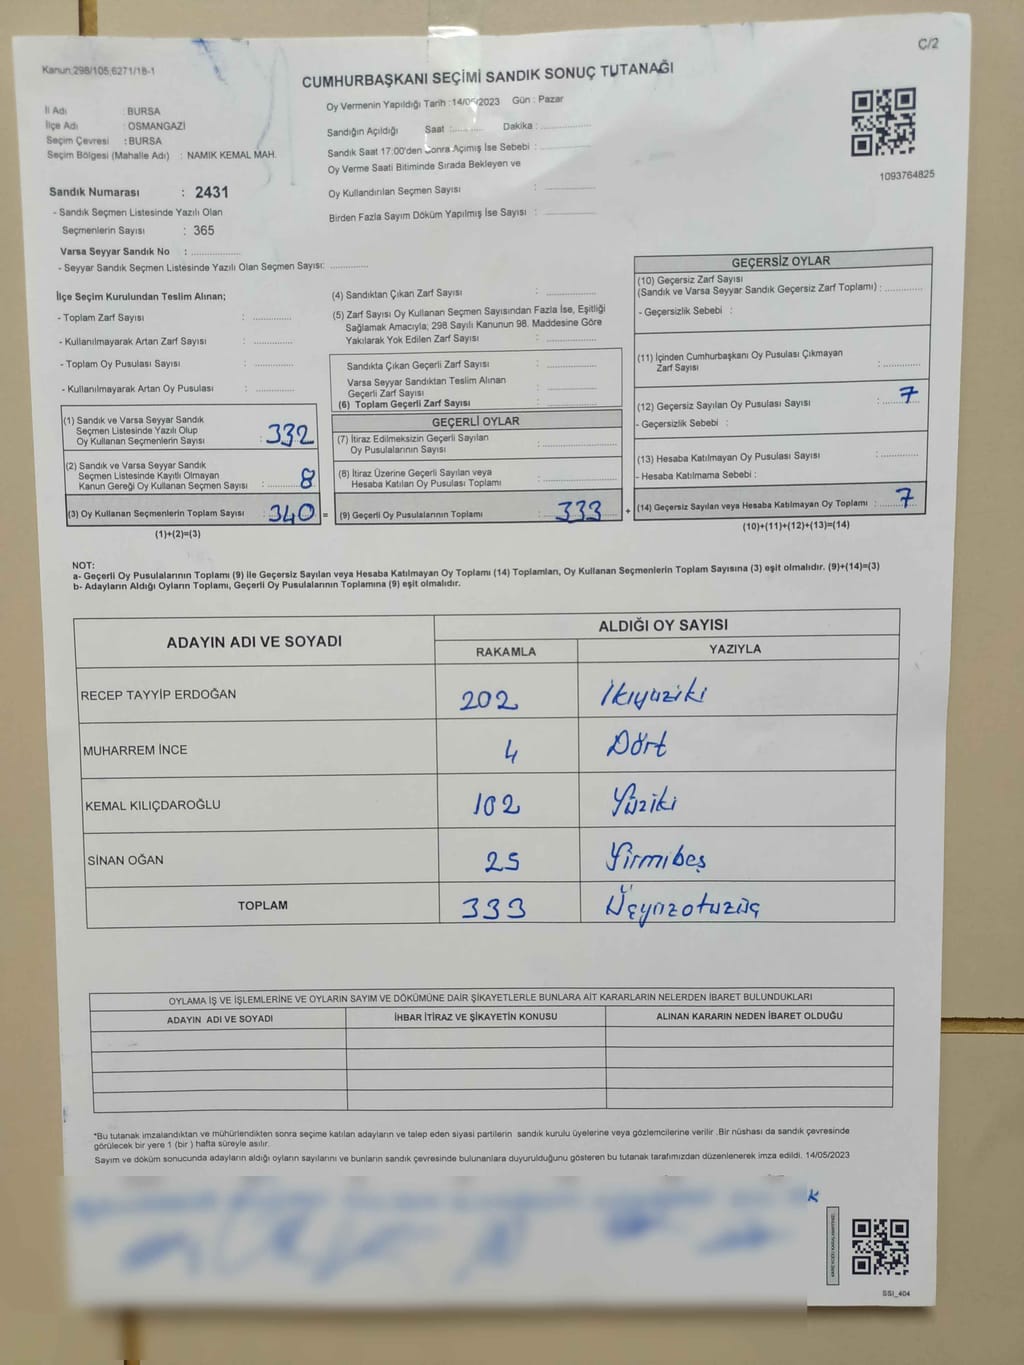 C/2
Kanun;298/105,6271/18-1
CUMHURBAŞKANI SEÇİMİ SANDIK SONUÇ TUTANAĞI
İl Adı : BURSA
İlçe Adı : OSMANGAZİ
Seçim Çevresi : BURSA
Seçim Bölgesi (Mahalle Adı) : NAMIK KEMAL MAH.
Oy Vermenin Yapıldığı Tarih :14/05/2023 Gün : Pazar
Sandığın Açıldığı Saat :.......... Dakika :...............
Sandık Saat 17:00'den Sonra Açımış İse Sebebi : ...............
Oy Verme Saati Bitiminde Sırada Bekleyen ve
Oy Kullandırılan Seçmen Sayısı : ...............
Birden Fazla Sayım Döküm Yapılmış İse Sayısı : ...............
1093764825
Sandık Numarası : 2431
- Sandık Seçmen Listesinde Yazılı Olan
Seçmenlerin Sayısı : 365
Varsa Seyyar Sandık No : ...............
- Seyyar Sandık Seçmen Listesinde Yazılı Olan Seçmen Sayısı: ............
İlçe Seçim Kurulundan Teslim Alınan;
- Toplam Zarf Sayısı : ............
- Kullanılmayarak Artan Zarf Sayısı : ............
- Toplam Oy Pusulası Sayısı : ............
- Kullanılmayarak Artan Oy Pusulası : ............
(1) Sandık ve Varsa Seyyar Sandık
Seçmen Listesinde Yazılı Olup
Oy Kullanan Seçmenlerin Sayısı : 332
(2) Sandık ve Varsa Seyyar Sandık
Seçmen Listesinde Kayıtlı Olmayan
Kanun Gereği Oy Kullanan Seçmen Sayısı : 8
(3) Oy Kullanan Seçmenlerin Toplam Sayısı : 340 =
(1)+(2)=(3)
(4) Sandıktan Çıkan Zarf Sayısı : ...............
(5) Zarf Sayısı Oy Kullanan Seçmen Sayısından Fazla İse, Eşitliği
Sağlamak Amacıyla; 298 Sayılı Kanunun 98. Maddesine Göre
Yakılarak Yok Edilen Zarf Sayısı : ...............
Sandıkta Çıkan Geçerli Zarf Sayısı : ...............
Varsa Seyyar Sandıktan Teslim Alınan
Geçerli Zarf Sayısı : ...............
(6) Toplam Geçerli Zarf Sayısı : ...............
GEÇERLİ OYLAR
(7) İtiraz Edilmeksizin Geçerli Sayılan
Oy Pusulalarının Sayısı : ...............
(8) İtiraz Üzerine Geçerli Sayılan veya
Hesaba Katılan Oy Pusulası Toplamı : ...............
(9) Geçerli Oy Pusulalarının Toplamı : 333 +
GEÇERSİZ OYLAR
(10) Geçersiz Zarf Sayısı
(Sandık ve Varsa Seyyar Sandık Geçersiz Zarf Toplamı) : ............
- Geçersizlik Sebebi :
(11) İçinden Cumhurbaşkanı Oy Pusulası Çıkmayan
Zarf Sayısı : ............
(12) Geçersiz Sayılan Oy Pusulası Sayısı : 7
- Geçersizlik Sebebi :
(13) Hesaba Katılmayan Oy Pusulası Sayısı : ............
- Hesaba Katılmama Sebebi :
(14) Geçersiz Sayılan veya Hesaba Katılmayan Oy Toplamı : 7
(10)+(11)+(12)+(13)=(14)
NOT:
a- Geçerli Oy Pusulalarının Toplamı (9) ile Geçersiz Sayılan veya Hesaba Katılmayan Oy Toplamı (14) Toplamları, Oy Kullanan Seçmenlerin Toplam Sayısına (3) eşit olmalıdır. (9)+(14)=(3)
b- Adayların Aldığı Oyların Toplamı, Geçerli Oy Pusulalarının Toplamına (9) eşit olmalıdır.
ADAYIN ADI VE SOYADI ALDIĞI OY SAYISI
RAKAMLA YAZIYLA
RECEP TAYYİP ERDOĞAN 202 İkiyüziki
MUHARREM İNCE 4 Dört
KEMAL KILIÇDAROĞLU 102 Yüziki
SİNAN OĞAN 25 Yirmibeş
TOPLAM 333 Üçyüzotuzüç
OYLAMA İŞ VE İŞLEMLERİNE VE OYLARIN SAYIM VE DÖKÜMÜNE DAİR ŞİKAYETLERLE BUNLARA AİT KARARLARIN NELERDEN İBARET BULUNDUKLARI
ADAYIN ADI VE SOYADI İHBAR İTİRAZ VE ŞİKAYETİN KONUSU ALINAN KARARIN NEDEN İBARET OLDUĞU
*Bu tutanak imzalandıktan ve mühürlendikten sonra seçime katılan adayların ve talep eden siyasi partilerin sandık kurulu üyelerine veya gözlemcilerine verilir .Bir nüshası da sandık çevresinde
görülecek bir yere 1 (bir ) hafta süreyle asılır.
Sayım ve döküm sonucunda adayların aldığı oyların sayılarını ve bunların sandık çevresinde bulunanlara duyurulduğunu gösteren bu tutanak tarafımızdan düzenlenerek imza edildi. 14/05/2023
SSI_404